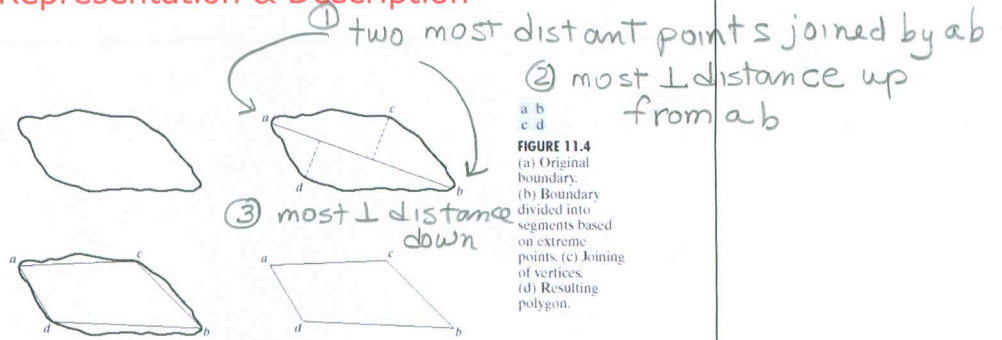 Representation & Description
① two most distant points joined by ab
② most ⊥ distance up
from ab
a
c
b
d
a b
c d
FIGURE 11.4
(a) Original
boundary.
(b) Boundary
divided into
segments based
on extreme
points. (c) Joining
of vertices.
(d) Resulting
polygon.
③ most ⊥ distance
down
a
c
d
b
a
c
d
b